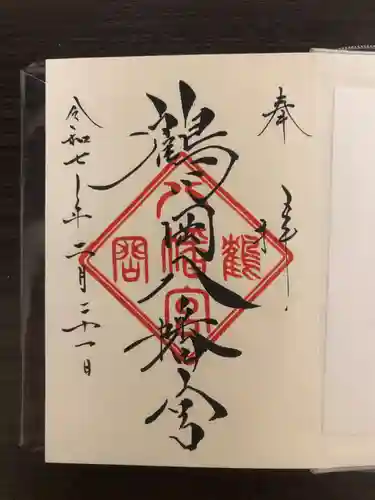 奉拝
鶴岡八幡宮
鶴岡八幡宮
令和七年二月二十一日